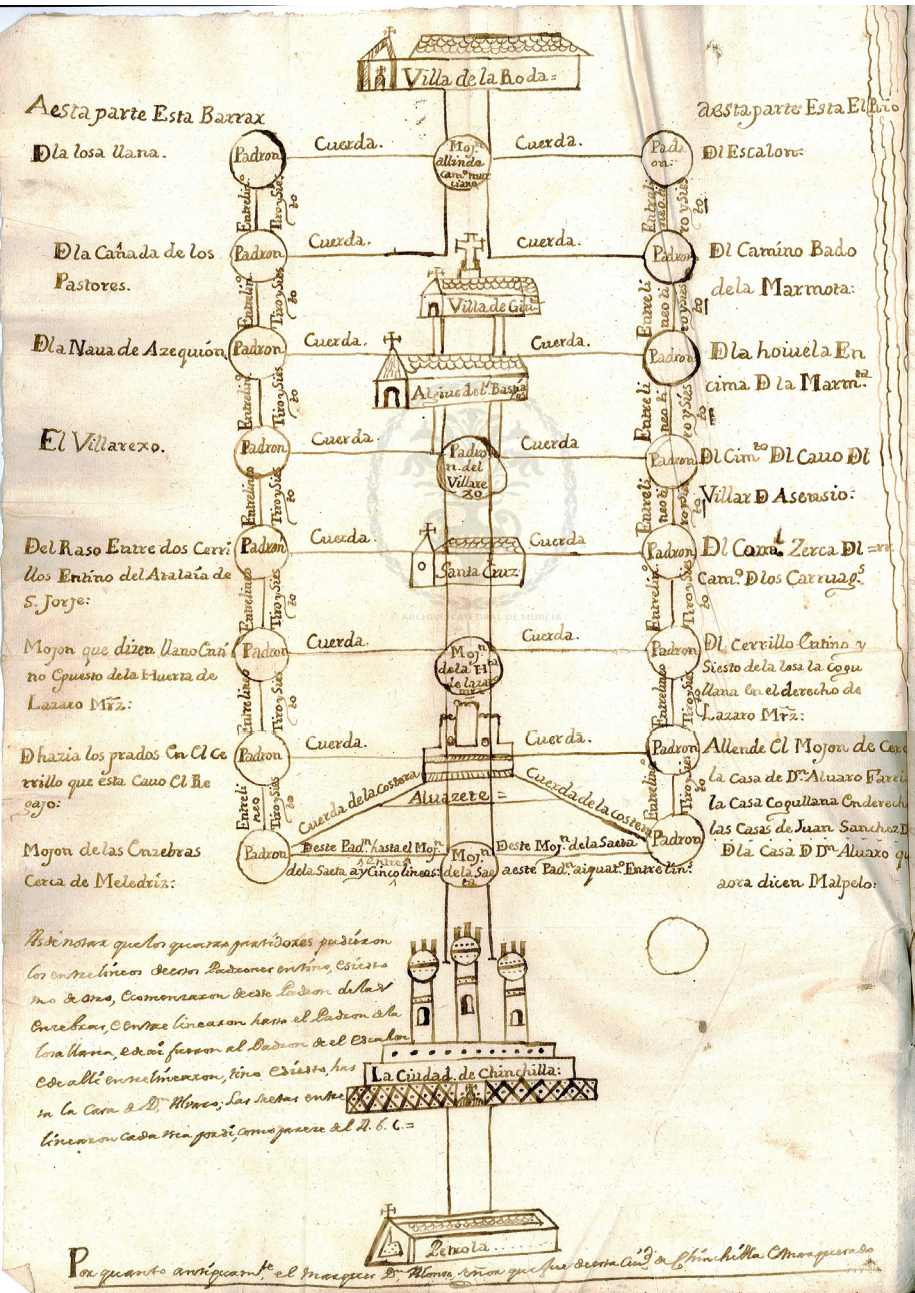 Villa de la Roda=
Aesta parte Esta Barrax
aesta parte Esta El Rio
Dla losa llana.
Padron
Cuerda.
Moj.n
allinde
cam.o mur
ciano
Cuerda.
Padr
on:
Dl Escalon:
Entrelin.o
Tiro y Sies
to
Entreli
neo ti
ro y Sies
to
Dla Cañada de los
Pastores.
Padron
Cuerda.
Cuerda.
Padron
Dl Camino Bado
dela Marmota:
Villa de
Entrelin.o
Tiro y Sies
to
Entreli
neo ti
ro y sies
to
Dla Naua de Azequion
Padron
Cuerda.
Cuerda.
Padron
Dla hoiuela En
cima D la Marm.ta
Entrelin.o
Tiro y Sies
to
Entreli
neo ti
ro y Sies
to
El Villarexo.
Padron
Cuerda
Padro
n. del
Villare
xo
Cuerda
Padron
Dl Cim.to Dl Cauo Dl
Villar D Asensio:
Entrelineo
Tiro y Sies
to
Entreli
neo ti
ro y sies
to
Del Raso Entre dos Cerri
llos Entino del Atalaia de
S. Jorje:
Padron
Cuerda.
Santa Cruz
Cuerda
Padron
Zerca Dl
Cam.o Dlos Carruag.s
Entrelineo
Tiro y Sies
to
Entrelin.o
Tiro y Sies
to
Mojon que dizen llano
no Opuesto de la Huerta de
Lazaro Mrz:
Padron
Cuerda.
Moj.n
dela H.ta
de Laza
Cuerda.
Padron
Dl Cerrillo Entino y
Siesto de la losa la Cogu
llana en el derecho de
Lazaro Mrz:
Entrelineo
Tiro y Sies
to
Entrelineo
Tiro y Sies
to
D hazia los prados En El Ce
rrillo que esta Cauo El Re
gajo:
Padron
Cuerda.
Cuerda.
Padron
Allende El Mojon de
la Casa de D.n Aluaro
la Casa Cogullana
las Casas de Juan Sanchez
Entreli
neo
Tiro y Sies
to
Cuerda de la Costera
Aluazete=
Cuerda de la Costera
Entrelin.o
Tiro y Sies
to
Mojon de las Enzebras
Cerca de Meledriz:
Padron
Deste Pad.n hasta el Moj.n
dela Saeta ay Cinco entre lineas:
Moj.n
dela Sae
ta
Deste Moj.n dela Saeta
aeste Pad.n ai quat.o Entrelin.s
Padron
Dla Casa D D.n Aluaro
aora dicen Malpelo:
Es de notar que los quatro partidores pudieron
los entrelineos de estos Padrones entino, esiesto
de este Padron de la
enzebras, e entre linearon hasta el Padron de la
losa llana, e de ai fueron al Padron de el Escalon
e de alli entrelinearon, tino e siesto has
ta la Casa de D.n Aluaro; las saetas entre
linearon cada una por si, como parece del A. b. c.=
La Ciudad de Chinchilla:
Petrola
Por quanto antiguam.te el marques D.n Alonso, señor que fue de esta Ciu.d de Chinchilla